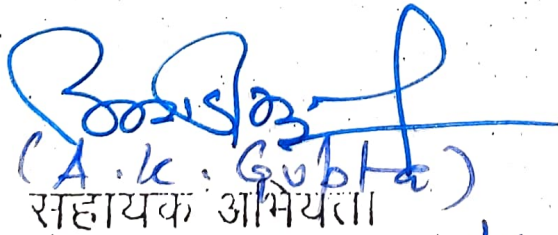 (A.K. Gupta)
सहायक अभियंता